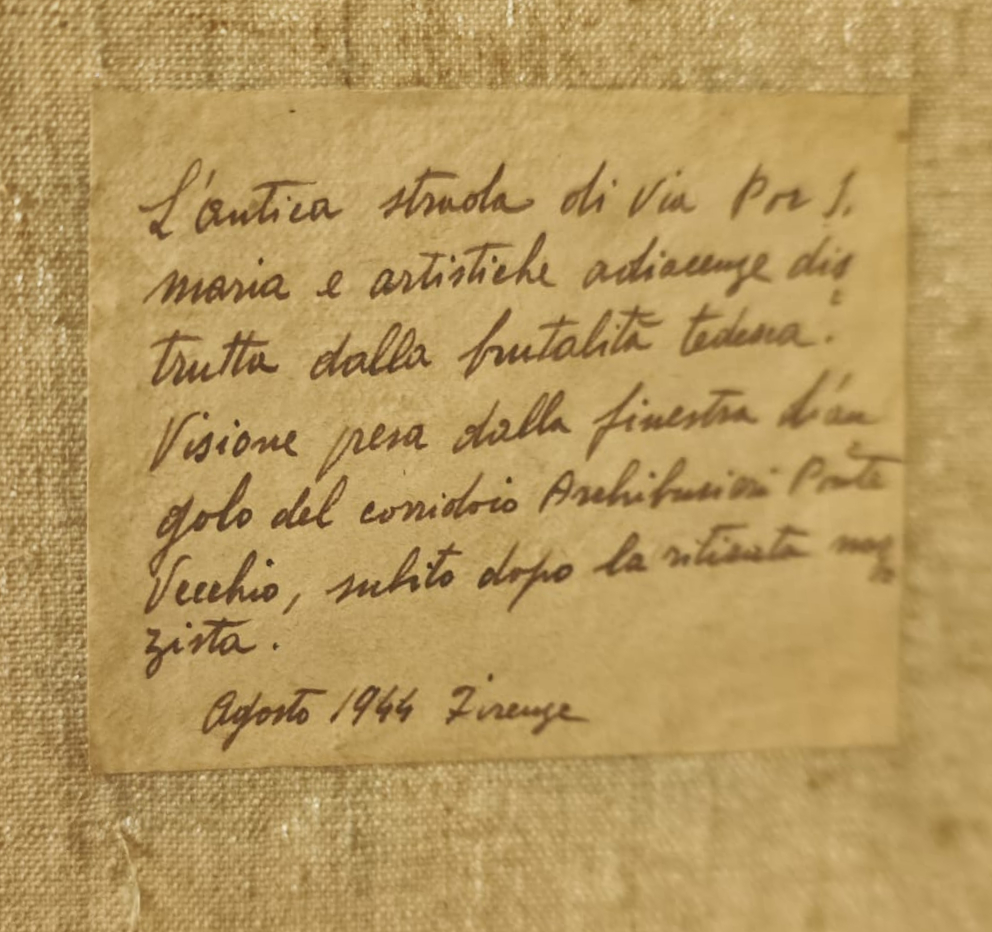 L'antica strada di Via Por S.
maria e artistiche adiacenze dis
trutta dalla brutalità tedesca.
Visione presa dalla finestra d'an
golo del corridoio Archibusieri Ponte
Vecchio, subito dopo la ritirata naz
zista.
Agosto 1944 Firenze